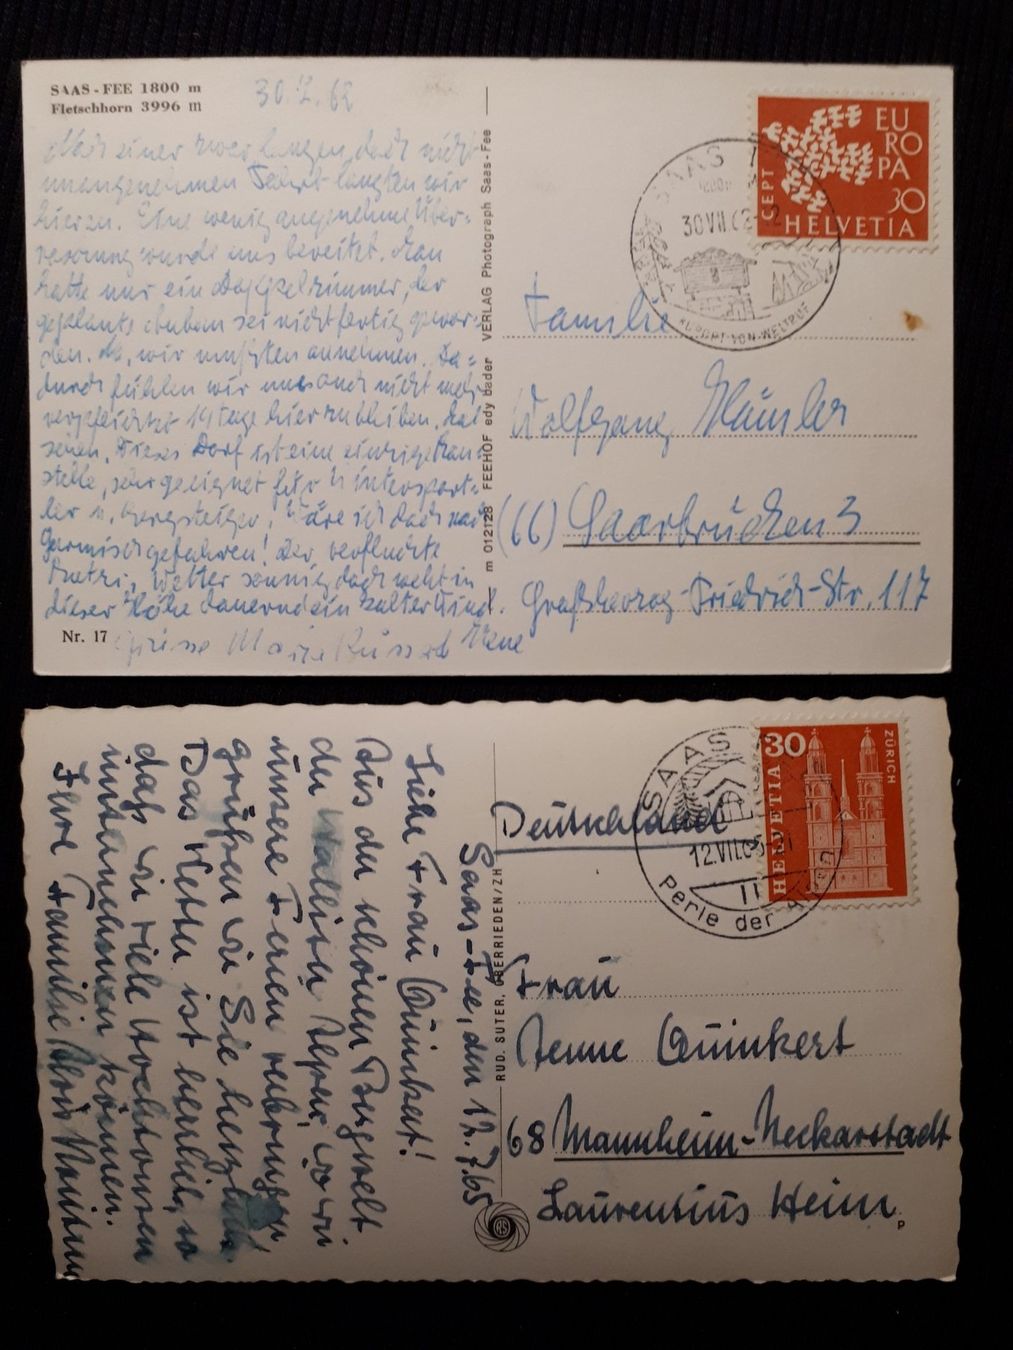 SAAS-FEE 1800 m
Fletschhorn 3996 m
30.12.62
Nach einer zwar langen, doch nicht
unangenehmen Fahrt langten wir
hier an. Eine wenig angenehme Über-
raschung wurde uns bereitet. Man
hatte nur ein Doppelzimmer, der
geplante Anbau sei nicht fertig gewor-
den. Na, wir mußten annehmen. Da-
durch fühlen wir uns auch nicht mehr
verpflichtet 14 Tage hier zu bleiben. Mal
sehen. Dieses Dorf ist eine einzige
stelle, sehr geeignet für Wintersport-
ler u. Bergsteiger. Wäre ich doch nach
Garmisch gefahren! Der verfluchte
Wetter sonnig doch weht in
dieser Höhe dauernd ein kalter Wind.
Nr. 17
Grüsse Maria
m 012128 FEEHOF edy bader VERLAG Photograph Saas-Fee
EUROPA
CEPT
30
HELVETIA
SAAS
30 VII 62 12
KURORT VON WELTRUF
Familie
Wolfgang Häusler
(66) Saarbrücken 3
Großherzog-Friedrich-Str. 117
Saas-Fee, den 12.7.65
Liebe Frau Quinkert!
Aus der schönen Bergwelt
der Walliser Alpen, wo wir
unsere Ferien verbringen,
grüßen wir Sie herzlich.
Das Wetter ist herrlich, so
daß wir viele Hochtouren
unternehmen können.
Ihre Familie
RUD. SUTER, OBERRIEDEN/ZH
RS
30
ZÜRICH
HELVETIA
SAAS
12.VII.65
Perle der Alpen
Deutschland
Frau
Änne Quinkert
68 Mannheim-Neckarstadt
Laurentius Heim
P